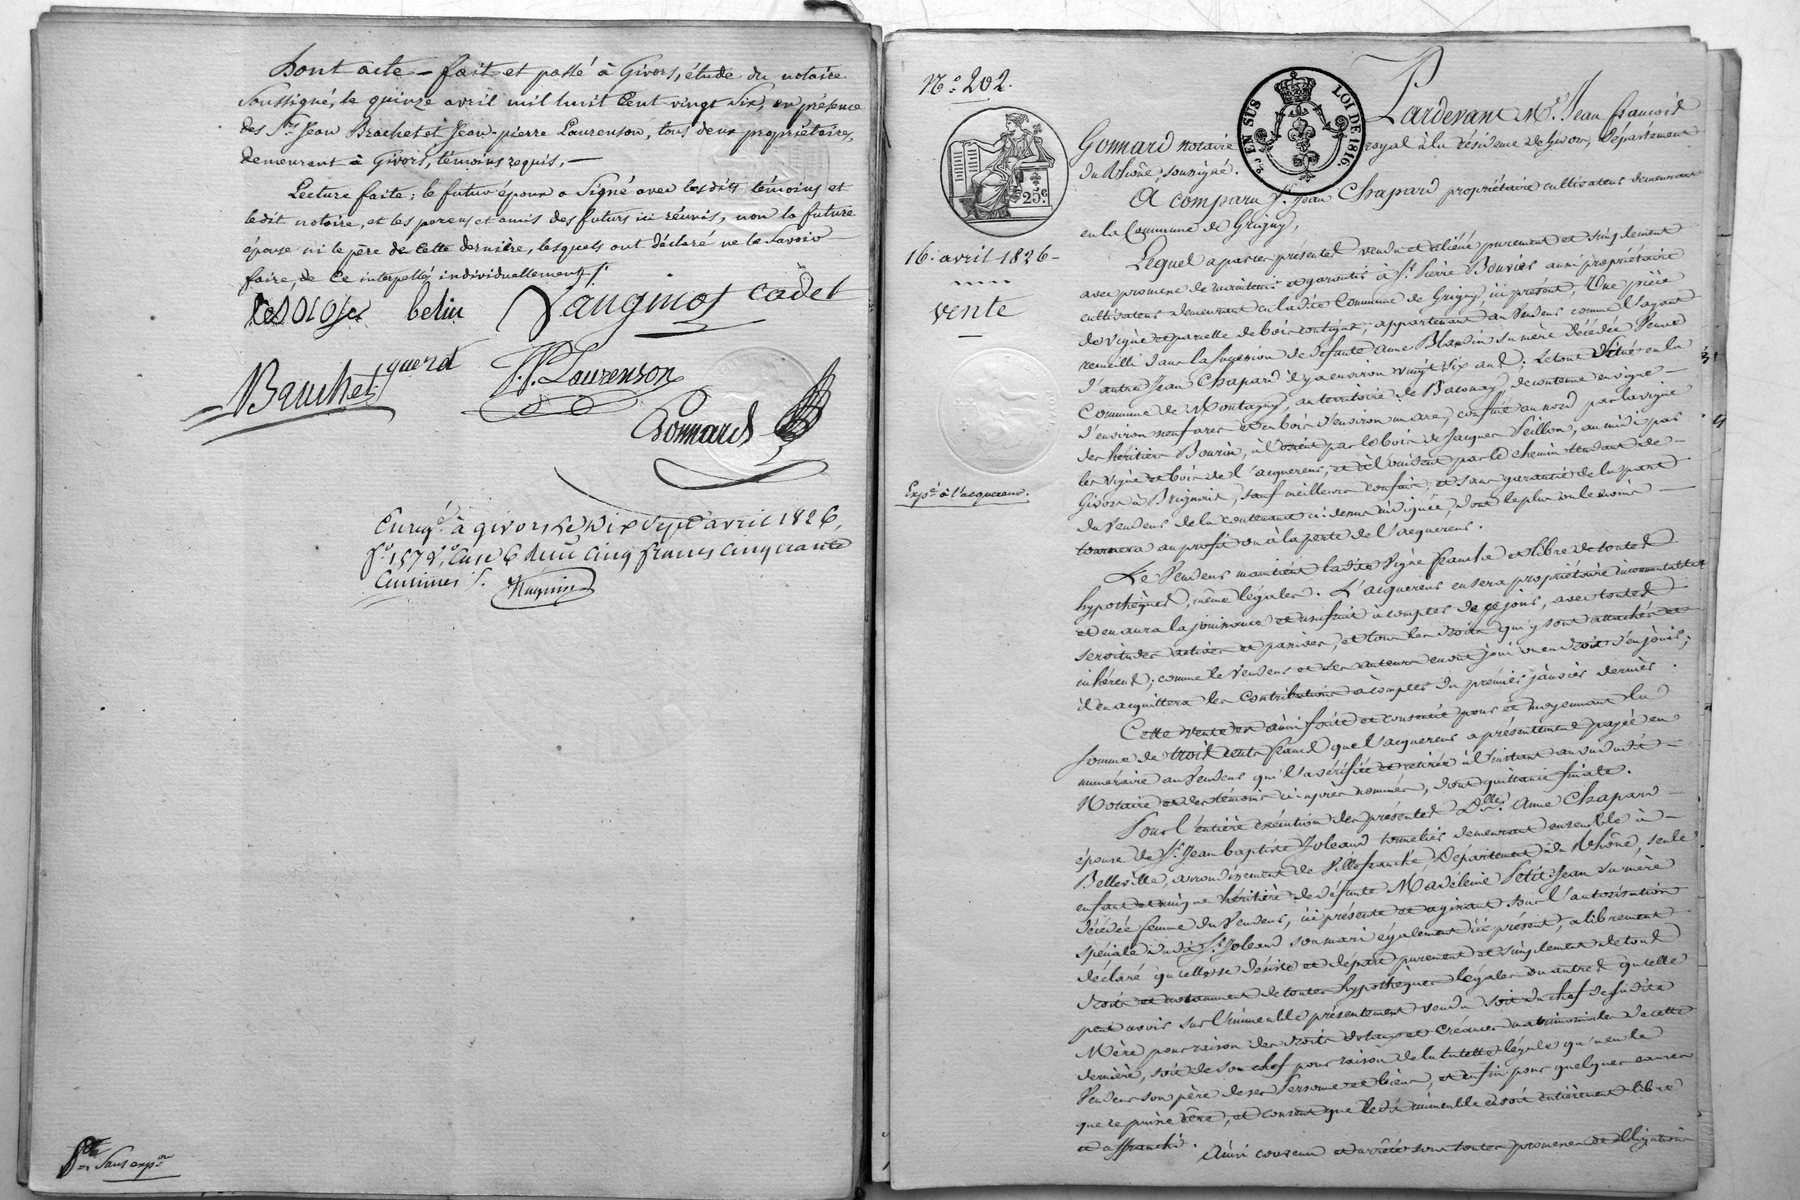 Dont acte – fait et passé à Givors, étude du notaire
soussigné, le quinze avril mil huit cent vingt six, en présence
des Srs Jean Brachet et Jean-pierre Laurenson, tous deux propriétaires,
demeurant à Givors, témoins requis, –
Lecture faite; le futur époux a signé avec lesdits témoins et
ledit notaire, et les parens et amis des futurs ici réunis, non la future
épouse ni le père de cette dernière, lesquels ont déclaré ne le savoir
faire, de ce interpellés individuellement
belin Vauginos cadet
J. P. Laurenson
Gonnard
Enregé. à givors le dix sept avril 1826,
fo. 157 Vo. Case 6 Reçu cinq francs cinquante
Centimes
Sans expon
No. 202.
EN SUS LOI DE 1816.
25c
16. avril 1826 –
vente
Expé. à l'acquereur.
Pardevant Me. Jean François
Gonnard notaire royal à la résidence de Givors, Département
du Rhône, soussigné.
A comparu Sr. Jean Chapard propriétaire cultivateur demeurant
en la Commune de Grigny,
Lequel a par ces présentes vendu et aliéné purement et simplement
avec promesse de maintenir et garantir à Sr. Pierre Bouvier aussi propriétaire
cultivateur demeurant en ladite Commune de Grigny, ici présent, Une pièce
de vigne et parcelle de bois contigus, appartenant au Vendeur comme l'ayant
recueilli dans la succession de défunte Anne Blandin sa mère décédée Veuve
d'autre Jean Chapard il y a environ vingt six ans; Le tout situé en la
Commune de Montagny, au territoire de de contenue en vigne –
d'environ neuf ares et en bois d'environ un are, confiné au nord par la vigne
des héritiers Bourin, à l'orient par le bois de Jacques Seillon, au midi par
les vigne et bois de l'acquereur, et à l'occident par le chemin tendant de –
Givors à Brignais, sauf meilleurs confins, et sans garantie de la part
du Vendeur de la contenance ci-dessus désignée, dont le plus ou le moins
tournera au profit ou à la perte de l'acquereur.
Le Vendeur maintient ladite Vigne franche et libre de toutes
hypothèques, même légales. L'acquereur en sera propriétaire incommutable
et en aura la jouissance et usufruit à compter de ce jour, avec toutes
servitudes actives et passives, et tous les droits qui y sont attachés et
inhérens; comme le Vendeur et ses auteurs en ont joui ou en droit d'en jouir;
il en acquittera les contributions à compter du premier janvier dernier.
Cette vente est ainsi faite et consentie pour et moyennant la
somme de trois cents francs que l'acquereur a présentement payée en
numéraire au Vendeur qui l'a vérifiée et retirée à l'instant au vu dudit
Notaire et des témoins ci-après nommés, dont quittance finale.
Pour l'entière exécution des présentes Dlle. Anne Chapard –
épouse de Sr. Jean baptiste Joleaud tonnelier demeurant ensemble à –
Belleville, arrondissement de Villefranche Département du Rhône, seule
enfant et unique héritière de défunte Madeleine Petit-Jean sa mère
décédée femme du Vendeur, ici présente et agissant sous l'autorisation
spéciale dudit Sr. Joleaud son mari également ici présent, a librement
déclaré qu'elle se désiste et départ purement et simplement de tous
droits et notamment de toutes hypothèques légales ou autres qu'elle
peut avoir sur l'immeuble présentement vendu soit du chef de sadite
Mère pour raison des droits dotaux et créances matrimoniales de cette
dernière, soit de son chef pour raison de la tutelle légale qu'a eu le
Vendeur son père de ses Personne et biens, et enfin pour quelques causes
que ce puisse être, et consent que ledit immeuble en soit entièrement libre
et affranchi. Ainsi convenu et arrêté sous toutes promesses et obligations